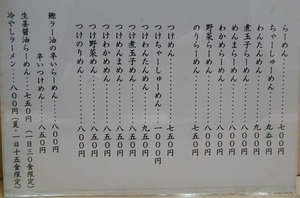 らーめん……………七〇〇円
ちゃーしゅーめん……九五〇円
わんたんめん…………九〇〇円
煮玉子らーめん………八〇〇円
めんまらーめん………八〇〇円
わかめらーめん………八〇〇円
野菜らーめん…………八〇〇円
のりらーめん…………八五〇円
つけめん………………七五〇円
つけちゃーしゅーめん…一〇〇〇円
つけわんたんめん……九五〇円
つけ煮玉子めん………八五〇円
つけめんまめん………八五〇円
つけわかめめん………八五〇円
つけ野菜めん…………八五〇円
つけのりめん…………八五〇円
鰹ラー油の辛いらーめん…八〇〇円
辛いつけめん…八五〇円
生姜醤油らーめん……七五〇円(一日三〇食限定)
冷やしラーメン……八〇〇円(夏・一日十五食限定)